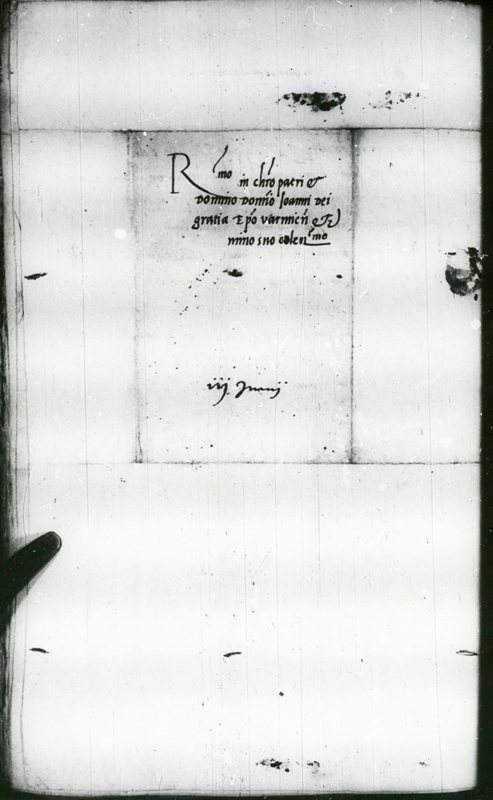 R.mo in chr̃o patri et
domino domĩo Joanni dei
gratia Ep̃o varmieñ et
mino suo colen.mo
iij. Junij